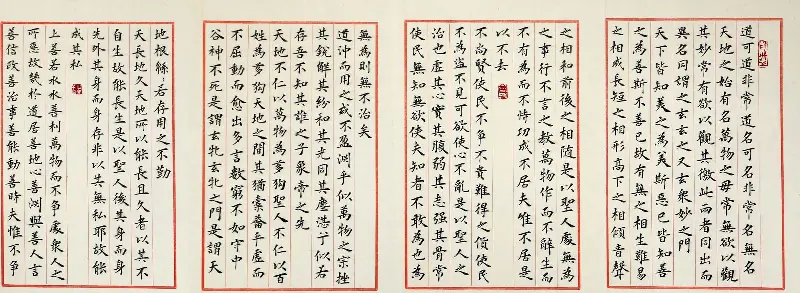 道可道非常道名可名非常名無名
天地之始有名萬物之母常無欲以觀
其妙常有欲以觀其徼此兩者同出而
異名同謂之玄玄之又玄衆妙之門
天下皆知美之為美斯惡已皆知善
之為善斯不善已故有無之相生難易
之相成長短之相形高下之相傾音聲
之相和前後之相隨是以聖人處無為
之事行不言之教萬物作而不辭生而
不有為而不恃功成不居夫惟不居是
以不去
不尚賢使民不爭不貴難得之貨使民
不為盜不見可欲使心不亂是以聖人之
治也虛其心實其腹弱其志強其骨常
使民無知無欲使夫知者不敢為也為
無為則無不治矣
道沖而用之或不盈淵乎似萬物之宗挫
其銳解其紛和其光同其塵湛兮似若
存吾不知其誰之子象帝之先
天地不仁以萬物為芻狗聖人不仁以百
姓為芻狗天地之間其猶橐龠乎虛而
不屈動而愈出多言數窮不如守中
谷神不死是謂玄牝玄牝之門是謂天
地根綿々若存用之不勤
天長地久天地所以能長且久者以其不
自生故能長生是以聖人後其身而身
先外其身而身存非以其無私耶故能
成其私
上善若水水善利萬物而不爭處衆人之
所惡故幾於道居善地心善淵與善人言
善信政善治事善能動善時夫惟不爭